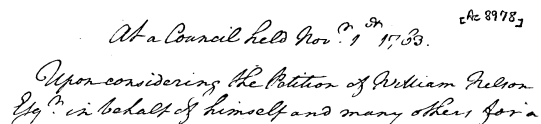 [Ac 8978]
At a Council held Nov.r 1st 1733.
Upon considering the Petition of William Nelson
Esq.r in behalf of himself and many others for a